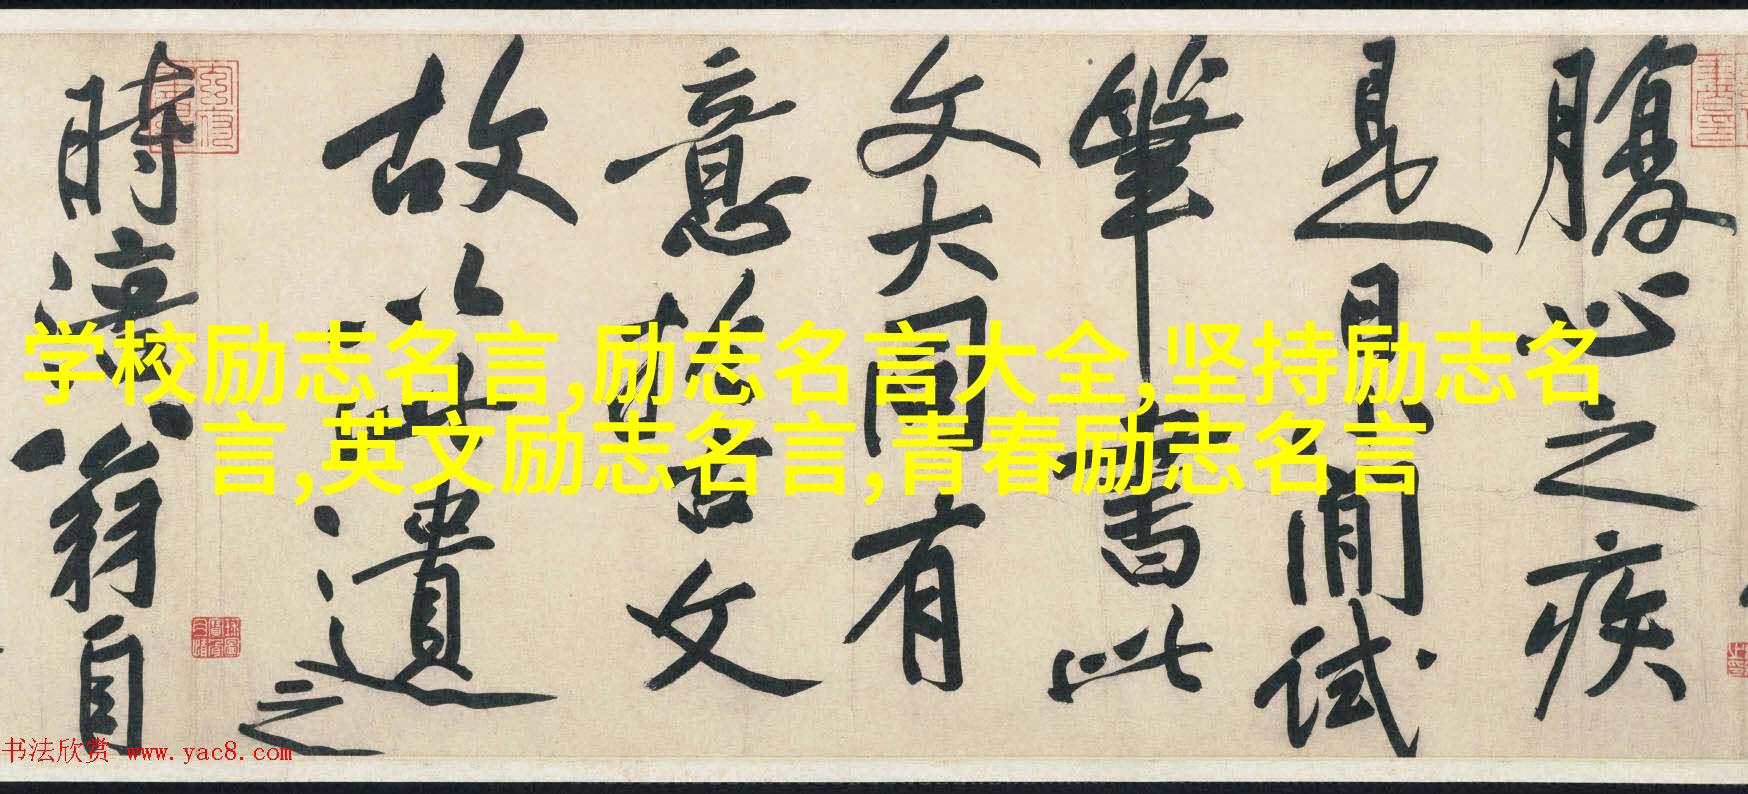 腹心之疾
是日閒試
筆書此
文大同有
意於古文
故以遺之
時涪翁自
学校励志名言,励志名言大全,坚持励志名
言,英文励志名言,青春励志名言
书法欣赏 www.yac8.com